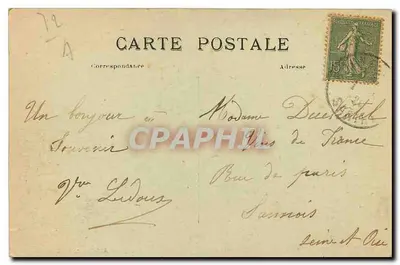 72
A
CARTE POSTALE
Correspondance
Adresse
Un bonjour
Souvenir
Vve Ledoux
Madame
Vins de France
Rue de paris
Sannois
Seine et Oise
CPAPHIL